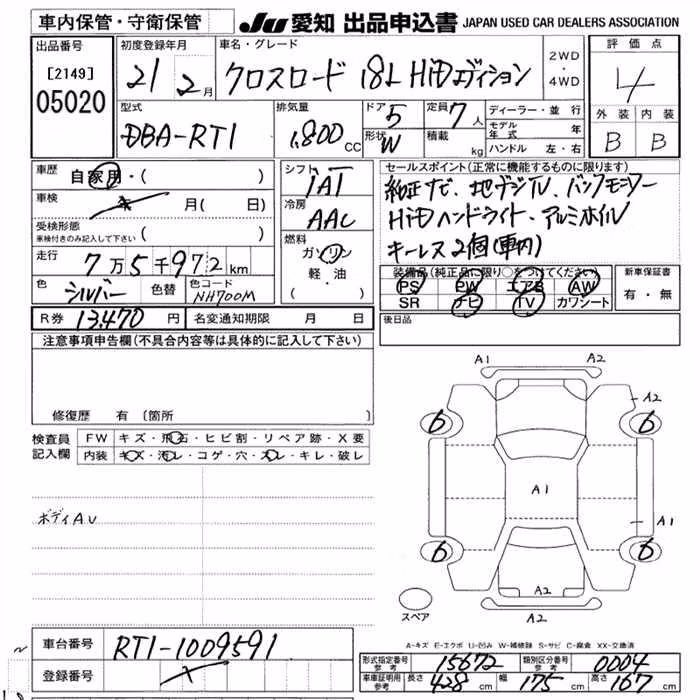 車内保管・守衛保管
JU 愛知 出品申込書 JAPAN USED CAR DEALERS ASSOCIATION
出品番号
[2149]
05020
初度登録年月
21 2月
車名・グレード
クロスロード 18L HiDエディション
2WD
・
4WD
評価点
4
型式
DBA-RT1
排気量
1,800 CC
ドア 5
定員 7人
形状 W
積載 kg
ディーラー・並行
モデル年式 年
ハンドル 左・右
外装 内装
B B
車歴 自家用・( )
車検 年 月( 日)
受検形態
車検付きのみ記入して下さい ( )
走行 7万5千972km
色 シルバー 色替 色コード NH700M
シフト
IAT
冷房
AAC
燃料
ガソリン
軽・油
・( )
セールスポイント(正常に機能するものに限ります)
純正ナビ、地デジTV、バックモニター
HiDヘッドライト・アルミホイル
キーレス2個(車内)
装備品(純正品に限り○をつけてください)
PS PW エアB AW
SR ナビ TV カワシート
新車保証書
有・無
R券 13,470 円 名変通知期限 月 日
後日品
注意事項申告欄(不具合内容等は具体的に記入して下さい)
修復歴 有 〔箇所 〕
検査員
記入欄
FW キズ・飛石・ヒビ割・リペア跡・X要
内装 キズ・汚レ・コゲ・穴・スレ・キレ・破レ
ボディAU
A1 A2
A2
6 6
A1
A1
6 6
A2
A2
スペア
A-キズ E-エクボ U-凹み W-補修跡 S-サビ C-腐食 XX-交換済
車台番号 RT1-1009591
登録番号
形式指定番号 参考 15672 類別区分番号 参考 0004
車庫証明用 参考 長さ 428 cm 幅 175 cm 高さ 167 cm